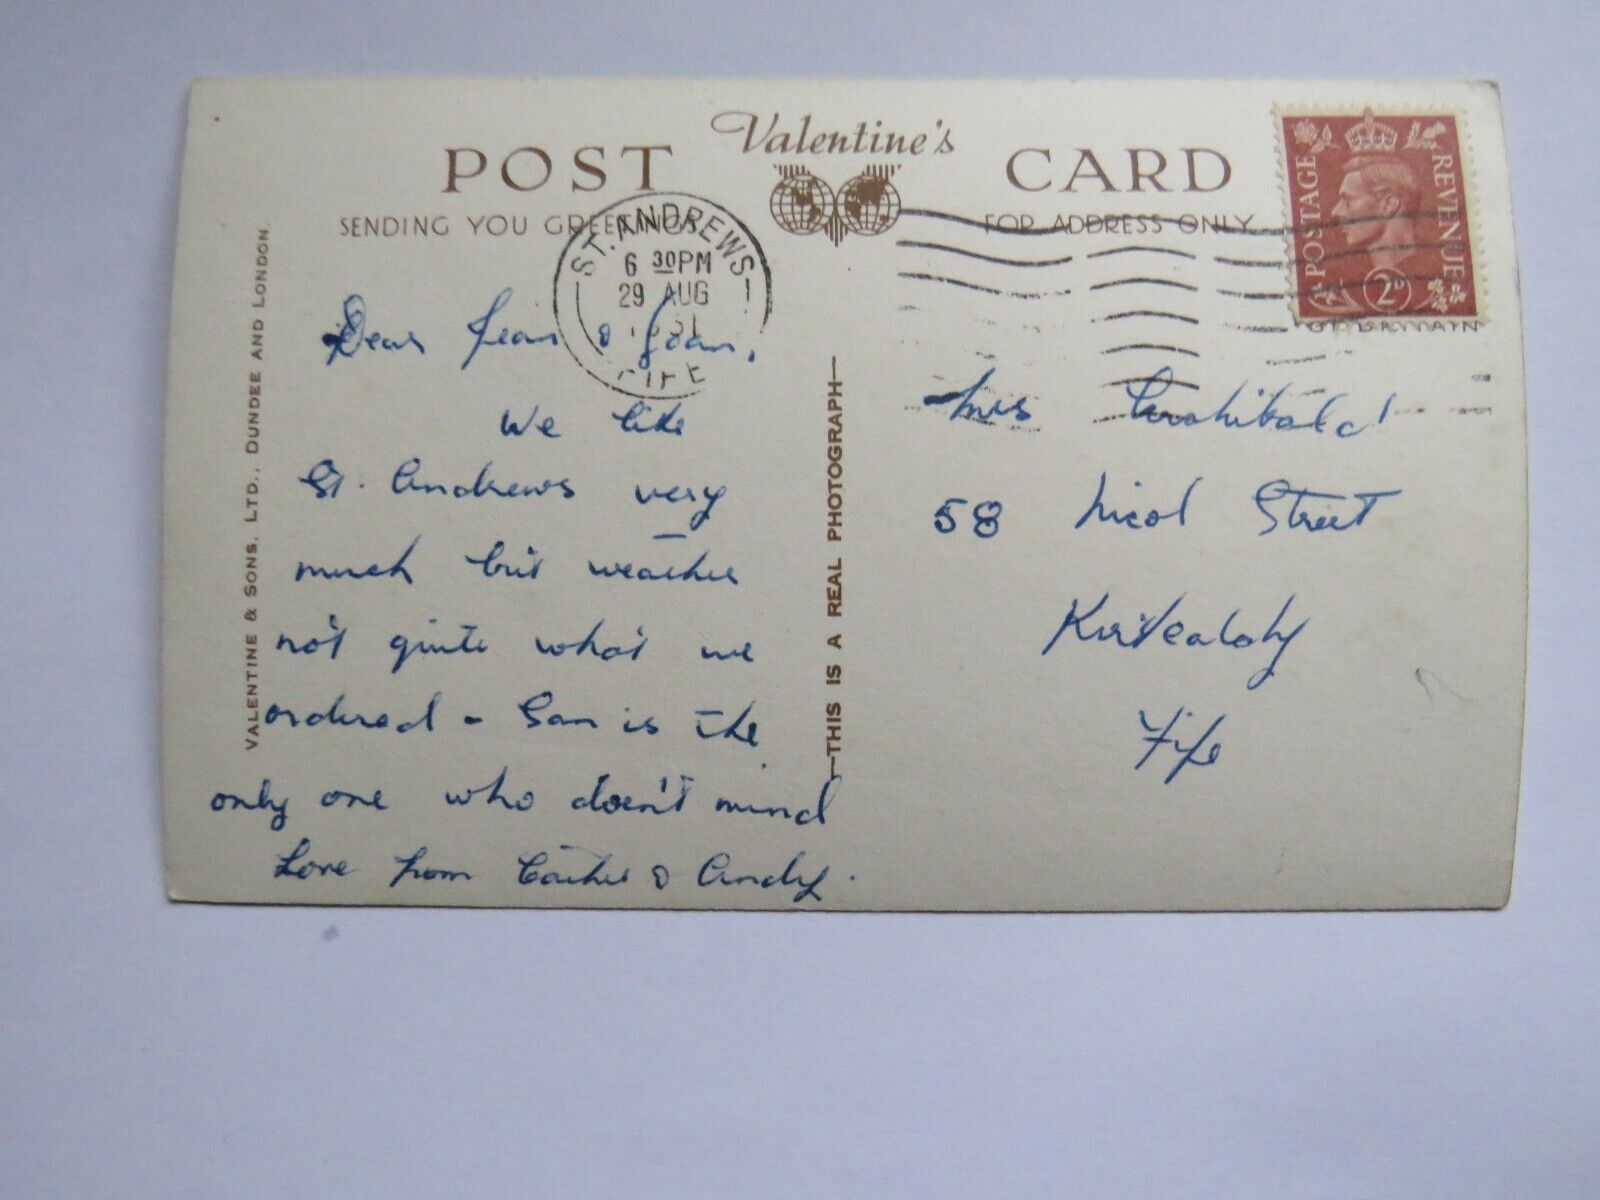 Valentine's
POST CARD
SENDING YOU GREETINGS
FOR ADDRESS ONLY
POSTAGE REVENUE
2D
ST. ANDREWS
6 30PM
29 AUG
FIFE
VALENTINE & SONS, LTD., DUNDEE AND LONDON.
Dear Jean & Joan,
We like
St. Andrews very
much but weather
not quite what we
ordered - San is the
only one who doesn't mind
Love from & Andy.
—THIS IS A REAL PHOTOGRAPH—
GT. BRITAIN
Mrs Archibald
58 Nicol Street
Kirkcaldy
Fife